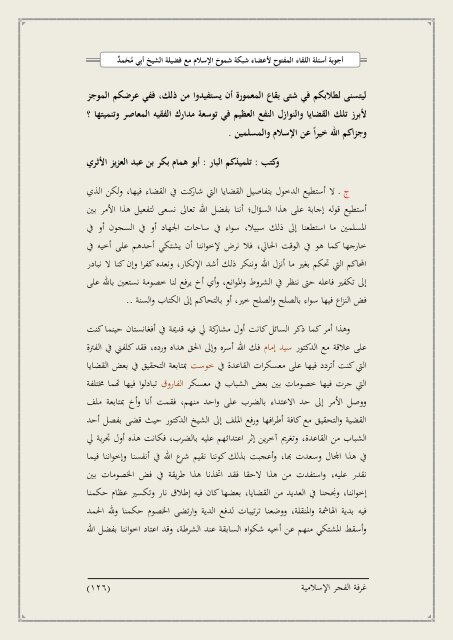 أجوبة أسئلة اللقاء المفتوح لأعضاء شبكة شموخ الإسلام مع فضيلة الشيخ أبي مُحَمدٌ
ليتسنى لطلابكم في شتى بقاع المعمورة أن يستفيدوا من ذلك، ففي عرضكم الموجز
لأبرز تلك القضايا والنوازل النفع العظيم في توسعة مدارك الفقيه المعاصر وتنميتها ؟
وجزاكم الله خيراً عن الإسلام والمسلمين .
وكتب : تلميذكم البار : أبو همام بكر بن عبد العزيز الأثري
ج . لا أستطيع الدخول بتفاصيل القضايا التي شاركت في القضاء فيها، ولكن الذي
أستطيع قوله إجابة على هذا السؤال؛ أننا بفضل الله تعالى نسعى لتفعيل هذا الأمر بين
المسلمين ما استطعنا إلى ذلك سبيلا، سواء في ساحات الجهاد أو في السجون أو في
خارجها كما هو في الوقت الحالي، فلا نرض لإخواننا أن يشتكي أحدهم على أخيه في
المحاكم التي تحكم بغير ما أنزل الله وننكر ذلك أشد الإنكار، ونعده كفرا وإن كنا لا نبادر
إلى تكفير فاعله حتى ننظر في الشروط والموانع، وأي أخ يرفع لنا خصومة نستعين بالله على
فض النزاع فيها سواء بالصلح والصلح خير، أو بالتحاكم إلى الكتاب والسنة ..
وهذا أمر كما ذكر السائل كانت أول مشاركة لي فيه قديمة في أفغانستان حينما كنت
على علاقة مع الدكتور سيد إمام فك الله أسره وإلى الحق هداه ورده، فقد كلفني في الفترة
التي كنت أتردد فيها على معسكرات القاعدة في خوست بمتابعة التحقيق في بعض القضايا
التي جرت فيها خصومات بين بعض الشباب في معسكر الفاروق تبادلوا فيها تهما مختلفة
ووصل الأمر إلى حد الاعتداء بالضرب على واحد منهم، فقمت أنا وأخ بمتابعة ملف
القضية والتحقيق مع كافة أطرافها ورفع الملف إلى الشيخ الدكتور حيث قضى بفصل أحد
الشباب من القاعدة، وتغريم آخرين إثر اعتدائهم عليه بالضرب، فكانت هذه أول تجربة لي
في هذا المجال وسعدت بها، وأعجبت بذلك كوننا نقيم شرع الله في أنفسنا وإخواننا فيما
نقدر عليه، واستفدت من هذا لاحقا فقد اتخذنا هذا طريقة في فض الخصومات بين
إخواننا، ونجحنا في العديد من القضايا، بعضها كان فيه إطلاق نار وتكسير عظام حكمنا
فيه بدية الهاشمة والمنقلة، ووضعنا ترتيبات لدفع الدية وارتضى الخصوم حكمنا ولله الحمد
وأسقط المشتكي منهم عن أخيه شكواه السابقة عند الشرطة، وقد اعتاد اخواننا بفضل الله
غرفة الفجر الإسلامية (١٢٦)